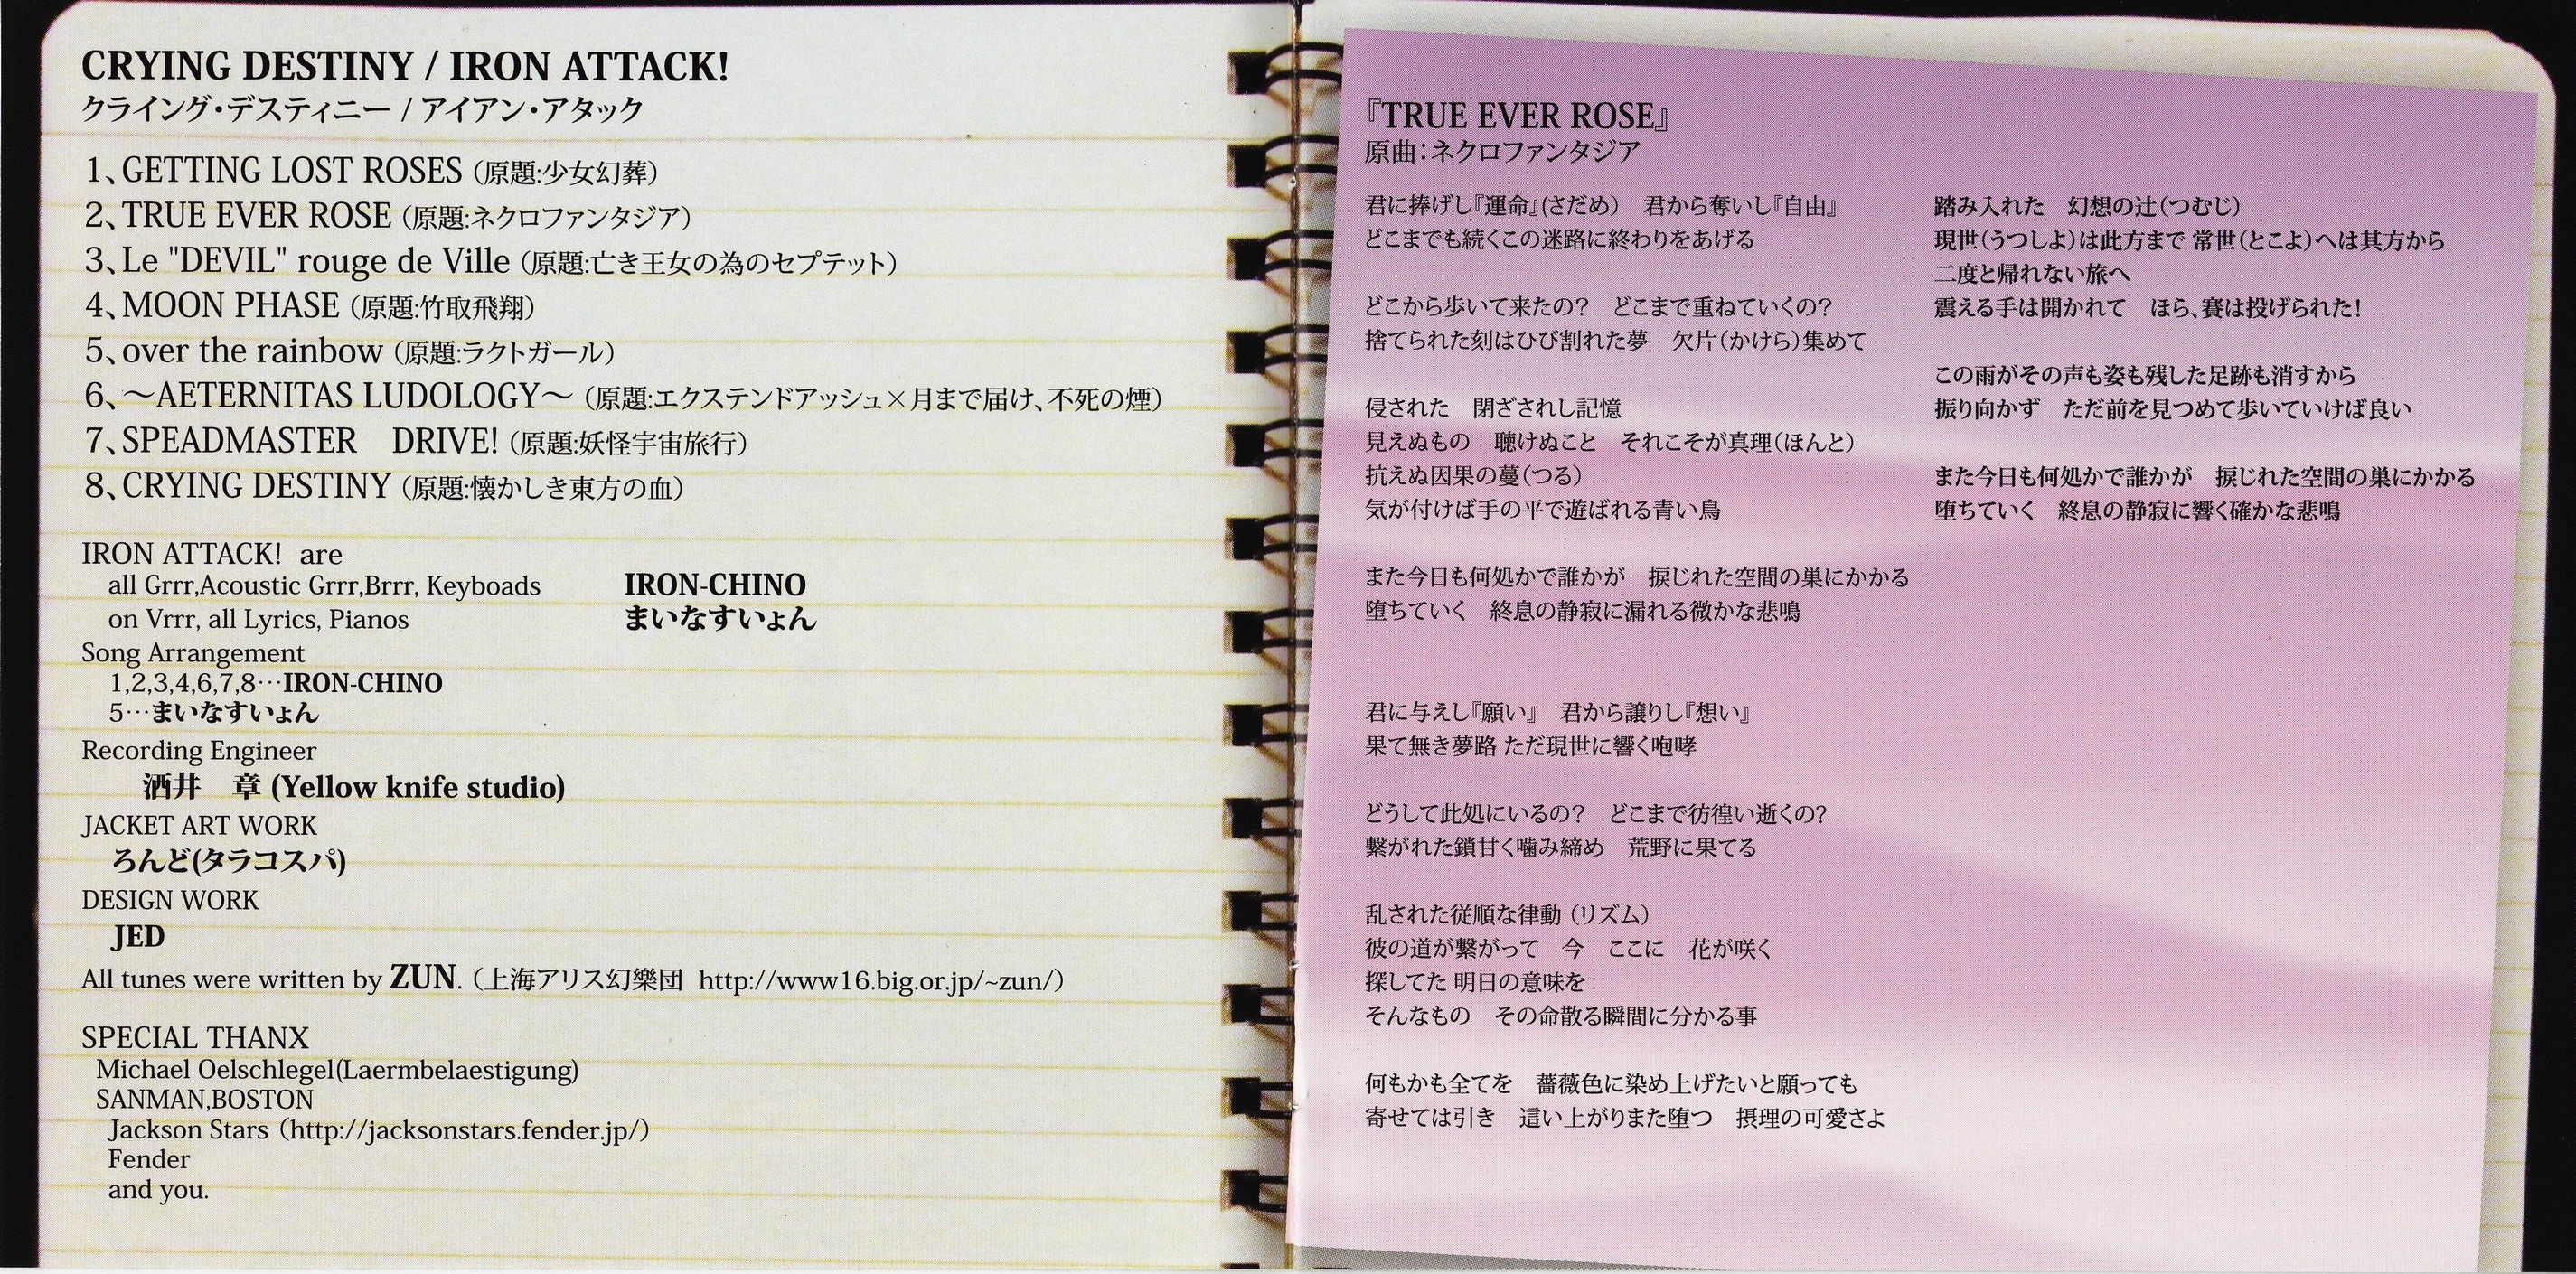 CRYING DESTINY / IRON ATTACK!
クライング・デスティニー / アイアン・アタック
1、GETTING LOST ROSES（原題:少女幻葬）
2、TRUE EVER ROSE（原題:ネクロファンタジア）
3、Le "DEVIL" rouge de Ville（原題:亡き王女の為のセプテット）
4、MOON PHASE（原題:竹取飛翔）
5、over the rainbow（原題:ラクトガール）
6、～AETERNITAS LUDOLOGY～（原題:エクステンドアッシュ×月まで届け、不死の煙）
7、SPEADMASTER　DRIVE!（原題:妖怪宇宙旅行）
8、CRYING DESTINY（原題:懐かしき東方の血）
IRON ATTACK! are
all Grrr,Acoustic Grrr,Brrr, Keyboads　IRON-CHINO
on Vrrr, all Lyrics, Pianos　まいなすいょん
Song Arrangement
1,2,3,4,6,7,8…IRON-CHINO
5…まいなすいょん
Recording Engineer
酒井　章 (Yellow knife studio)
JACKET ART WORK
ろんど(タラコスパ)
DESIGN WORK
JED
All tunes were written by ZUN.（上海アリス幻樂団 http://www16.big.or.jp/~zun/）
SPECIAL THANX
Michael Oelschlegel(Laermbelaestigung)
SANMAN,BOSTON
Jackson Stars（http://jacksonstars.fender.jp/）
Fender
and you.
『TRUE EVER ROSE』
原曲：ネクロファンタジア
君に捧げし『運命』(さだめ）　君から奪いし『自由』
どこまでも続くこの迷路に終わりをあげる
どこから歩いて来たの？　どこまで重ねていくの？
捨てられた刻はひび割れた夢　欠片（かけら）集めて
侵された　閉ざされし記憶
見えぬもの　聴けぬこと　それこそが真理（ほんと）
抗えぬ因果の蔓（つる）
気が付けば手の平で遊ばれる青い鳥
また今日も何処かで誰かが　捩じれた空間の巣にかかる
堕ちていく　終息の静寂に漏れる微かな悲鳴
君に与えし『願い』　君から譲りし『想い』
果て無き夢路 ただ現世に響く咆哮
どうして此処にいるの？　どこまで彷徨い逝くの？
繋がれた鎖甘く噛み締め　荒野に果てる
乱された従順な律動（リズム）
彼の道が繋がって　今　ここに　花が咲く
探してた 明日の意味を
そんなもの　その命散る瞬間に分かる事
何もかも全てを　薔薇色に染め上げたいと願っても
寄せては引き　這い上がりまた堕つ　摂理の可愛さよ
踏み入れた　幻想の辻（つむじ）
現世（うつしよ）は此方まで 常世（とこよ）へは其方から
二度と帰れない旅へ
震える手は開かれて　ほら、賽は投げられた！
この雨がその声も姿も残した足跡も消すから
振り向かず　ただ前を見つめて歩いていけば良い
また今日も何処かで誰かが　捩じれた空間の巣にかかる
堕ちていく　終息の静寂に響く確かな悲鳴